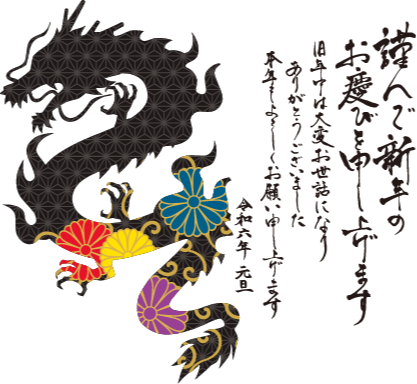 謹んで新年の
お慶びを申し上げます
旧年中は大変お世話になり
ありがとうございました
本年もよろしくお願い申し上げます
令和六年 元旦